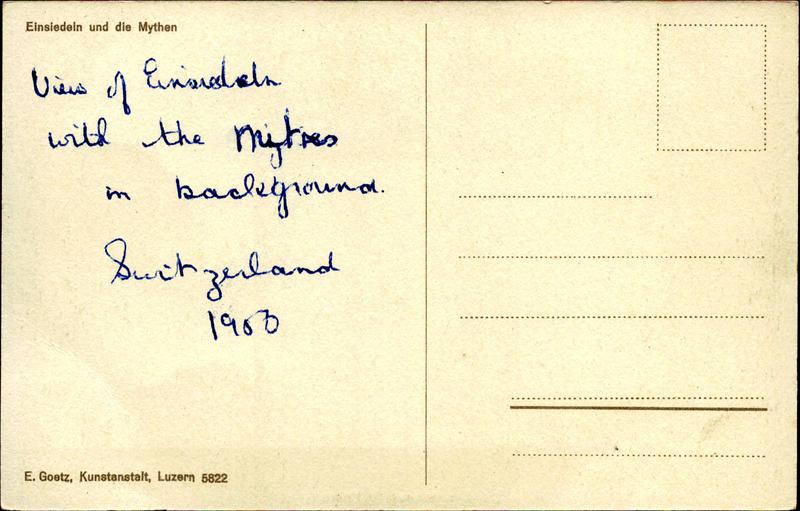 Einsiedeln und die Mythen
View of Einsiedeln
with the
in background.
Switzerland
E. Goetz, Kunstanstalt, Luzern 5822